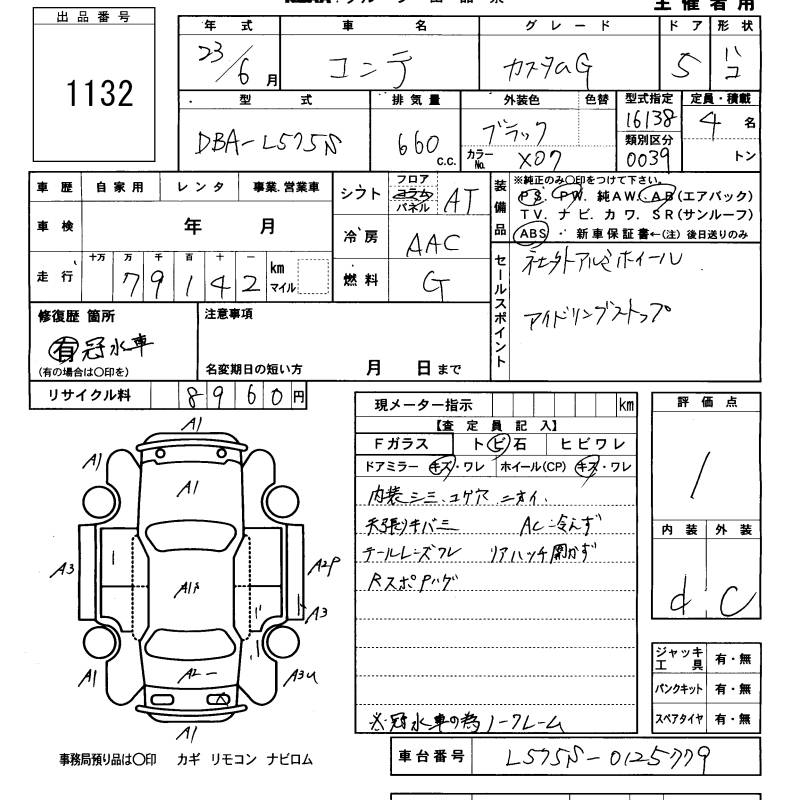 出品番号
1132
主催者用
年式 車名 グレード ドア 形状
23/6月 コンテ カスタムG 5 ハコ
型式 排気量 外装色 色替 型式指定 定員・積載
DBA-L575S 660 c.c. ブラック カラーNo. X07 16138 4名
類別区分
0039 トン
車歴 自家用 レンタ 事業.営業車 シフト フロア コラム パネル AT
車検 年 月 冷房 AAC
走行 十万 万 千 百 十 一 km マイル
79142
燃料 G
装備品 ※純正のみ〇印をつけて下さい。
PS. PW. 純AW. AB(エアバック)
TV. ナビ. カワ. SR(サンルーフ)
ABS 新車保証書←(注)後日送りのみ
セールスポイント 社外アルミホイール
アイドリングストップ
修復歴 箇所 注意事項
有 冠水車
(有の場合は〇印を) 名変期日の短い方 月 日まで
リサイクル料 8960円
現メーター指示 km
【査定員記入】
Fガラス トビ石 ヒビワレ
ドアミラー キズ・ワレ ホイール(CP) キズ・ワレ
内装シミ、コゲ穴 ニオイ
天張りキバミ AC冷えず
テールレンズワレ リアハッチ開かず
※冠水車の為ノークレーム
評価点
1
内装 外装
d C
ジャッキ工具 有・無
パンクキット 有・無
スペアタイヤ 有・無
A1
A1 A1
A1
A3 A1P A2P
A3
A2
A1 A3U
A1
事務局預り品は〇印 カギ リモコン ナビロム
車台番号 L575S-0125779